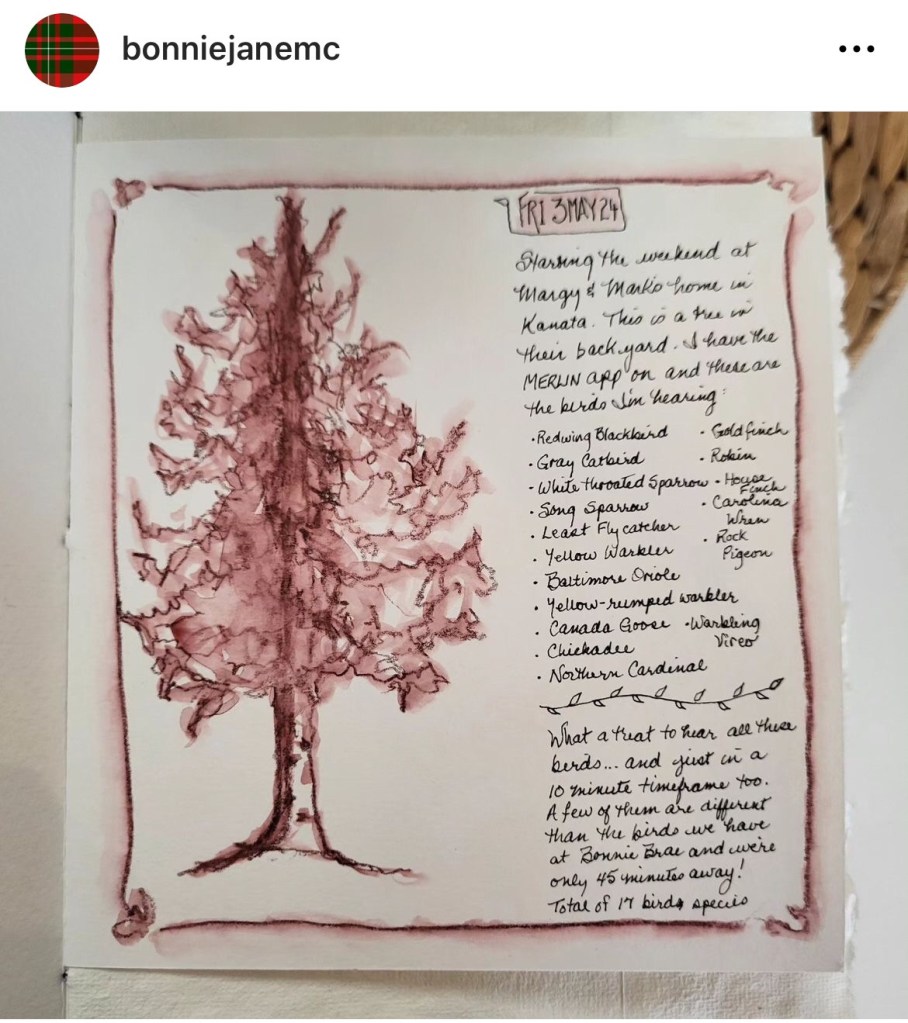 bonniejanemc
FRI 3MAY24
Starting the weekend at
Margy & Mark's home in
Kanata. This is a tree in
their back yard. I have the
MERLIN app on and these are
the birds I'm hearing:
· Redwing Blackbird
· Gray Catbird
· White throated Sparrow
· Song Sparrow
· Least Flycatcher
· Yellow Warbler
· Baltimore Oriole
· Yellow-rumped warbler
· Canada Goose
· Chickadee
· Northern Cardinal
· Goldfinch
· Robin
· House
Finch
· Carolina
Wren
· Rock
Pigeon
· Warbling
Vireo
What a treat to hear all these
birds... and just in a
10 minute timeframe too.
A few of them are different
than the birds we have
at Bonnie Brae and we're
only 45 minutes away!
Total of 17 birds species